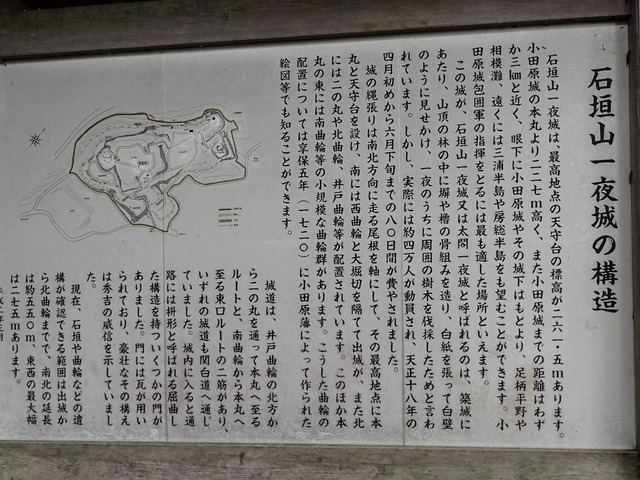 石垣山一夜城の構造
石垣山一夜城は、最高地点の天守台の標高が二六一・五mあります。
小田原城の本丸より二二七m高く、また小田原城までの距離はわず
か三kmと近く、眼下に小田原城やその城下はもとより、足柄平野や
相模灘、遠くには三浦半島や房総半島をも望むことができます。小
田原城包囲軍の指揮をとるには最も適した場所といえます。
この城が、石垣山一夜城又は太閤一夜城と呼ばれるのは、築城に
あたり、山頂の林の中に塀や櫓の骨組みを造り、白紙を張って白壁
のように見せかけ、一夜のうちに周囲の樹木を伐採したためと言わ
れています。しかし、実際には約四万人が動員され、天正十八年の
四月初めから六月下旬までの八〇日間が費やされました。
城の縄張りは南北方向に走る尾根を軸にして、その最高地点に本
丸と天守台を設け、南には西曲輪と大堀切を隔てて出城が、また北
には二の丸や北曲輪、井戸曲輪等が配置されています。このほか本
丸の東には南曲輪等の小規模な曲輪群があります。こうした曲輪の
配置については享保五年（一七二〇）に小田原藩によって作られた
絵図等でも知ることができます。
城道は、井戸曲輪の北方か
ら二の丸を通って本丸へ至る
ルートと、南曲輪から本丸へ
至る東口ルートの二筋があり、
いずれの城道も関白道へ通じ
ていました。城内に入ると通
路には枡形と呼ばれる屈曲し
た構造を持ついくつかの門が
ありました。門には瓦が用い
られており、豪壮なその構え
は秀吉の威信を示していまし
た。
現在、石垣や曲輪などの遺
構が確認できる範囲は出城か
ら北曲輪まで、南北の延長
は約五五〇m、東西の最大幅
は二七五mあります。